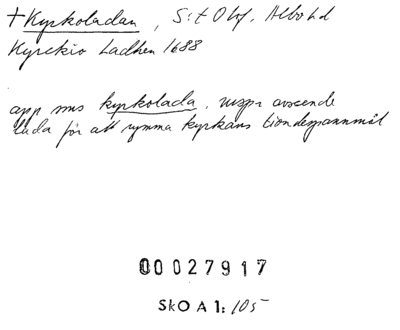 †Kyrkoladan, S:t Olof, Albo hd
Kyrckio Ladhen 1688
app sms kyrkolada, urspr avseende
lada för att rymma kyrkans tiondespannmål
00027917
SkO A 1: 105